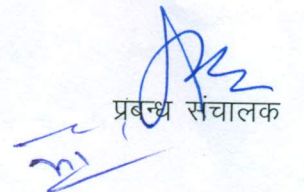 प्रबन्ध संचालक